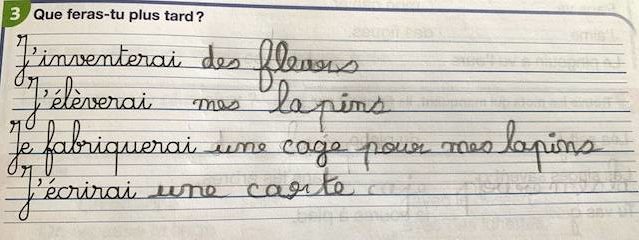 3 Que feras-tu plus tard ?
J'inventerai des fleurs
J'élèverai mes lapins
Je fabriquerai une cage pour mes lapins
J'écrirai une carte